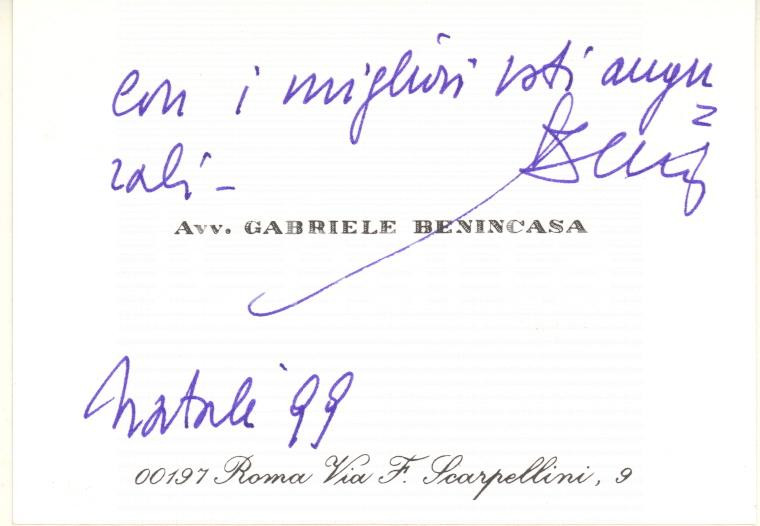 con i migliori voti augu
rali -
Avv. GABRIELE BENINCASA
Natale '99
00197 Roma Via F. Scarpellini, 9